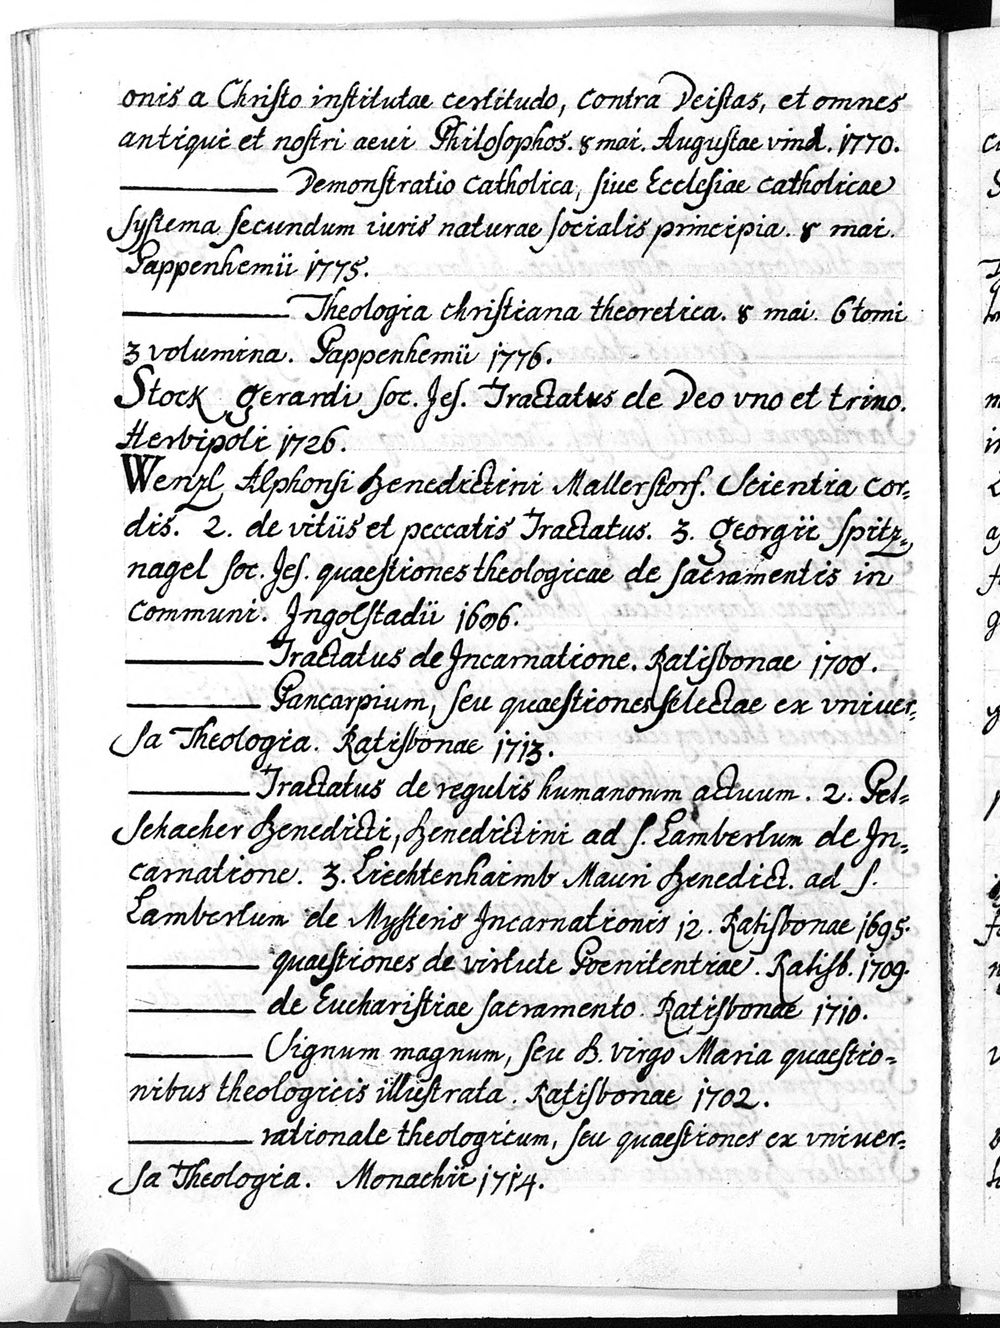 onis a Christo institutae certitudo, contra Deistas, et omnes
antiqui et nostri aeui Philosophos. 8 mai. Augustae vind. 1770.
——— Demonstratio catholica, siue Ecclesiae catholicae
systema secundum iuris naturae socialis principia. 8 mai.
Pappenhemii 1775.
——— Theologia christiana theoretica. 8 mai. 6 tomi
3 volumina. Pappenhemii 1776.
Stock Gerardi soc. Jes. Tractatus de Deo vno et trino.
Herbipoli 1726.
Wenzl Alphonsi Benedictini Mallerstorf. Scientia cor=
dis. 2. de vitiis et peccatis Tractatus. 3. Georgii Spitz=
nagel Soc. Jes. quaestiones theologicae de sacramentis in
communi. Ingolstadii
——— Tractatus de Incarnatione. Ratisbonae 1700.
——— Pancarpium, seu quaestiones selectae ex vniuer=
sa Theologia. Ratisbonae 1713.
——— Tractatus de regulis humanorum actuum. 2. Pet=
schacher Benedicti, Benedictini ad S. Lambertum de In=
carnatione. 3. Liechtenhaimb Mauri Benedict. ad S.
Lambertum de Mysteris Incarnationis 12. Ratisbonae 1695.
——— quaestiones de virtute Poenitentiae. Ratisb. 1709.
——— de Eucharistiae sacramento. Ratisbonae 1710.
——— Signum magnum, seu B. virgo Maria quaestio=
nibus theologicis illustrata. Ratisbonae 1702.
——— rationale theologicum, seu quaestiones ex vniuer=
sa Theologia. Monachii 1714.